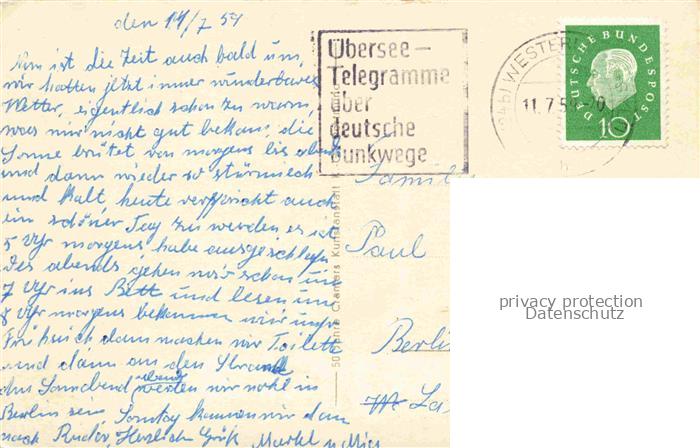 den 11/7 59
Nun ist die Zeit auch bald um,
wir hatten jetzt immer wunderbares
Wetter, eigentlich schon zu warm,
was mir nicht gut bekam, die
Sonne brütet von morgens bis abends
und dann wieder so stürmisch
und kalt, heute verspricht auch
ein schöner Tag zu werden es ist
5 Uhr morgens habe ausgeschlafen
Des abends gehen wir schon um
7 Uhr ins Bett und lesen um
8 Uhr morgens bekommen wir unser
Frühstück dann machen wir Toilette
und dann an den Strand
das Sonnabend abend werden wir wohl in
Berlin sein Sonntag kommen wir dann
nach Rudow, Herzlich Grüß
Übersee-
Telegramme
über
deutsche
Funkwege
WESTERL
11.7.59-20
DEUTSCHE BUNDESPOST
10
50 Jahre Cramers Kunstanstalt
Famil
Paul
Berli
La
privacy protection
Datenschutz